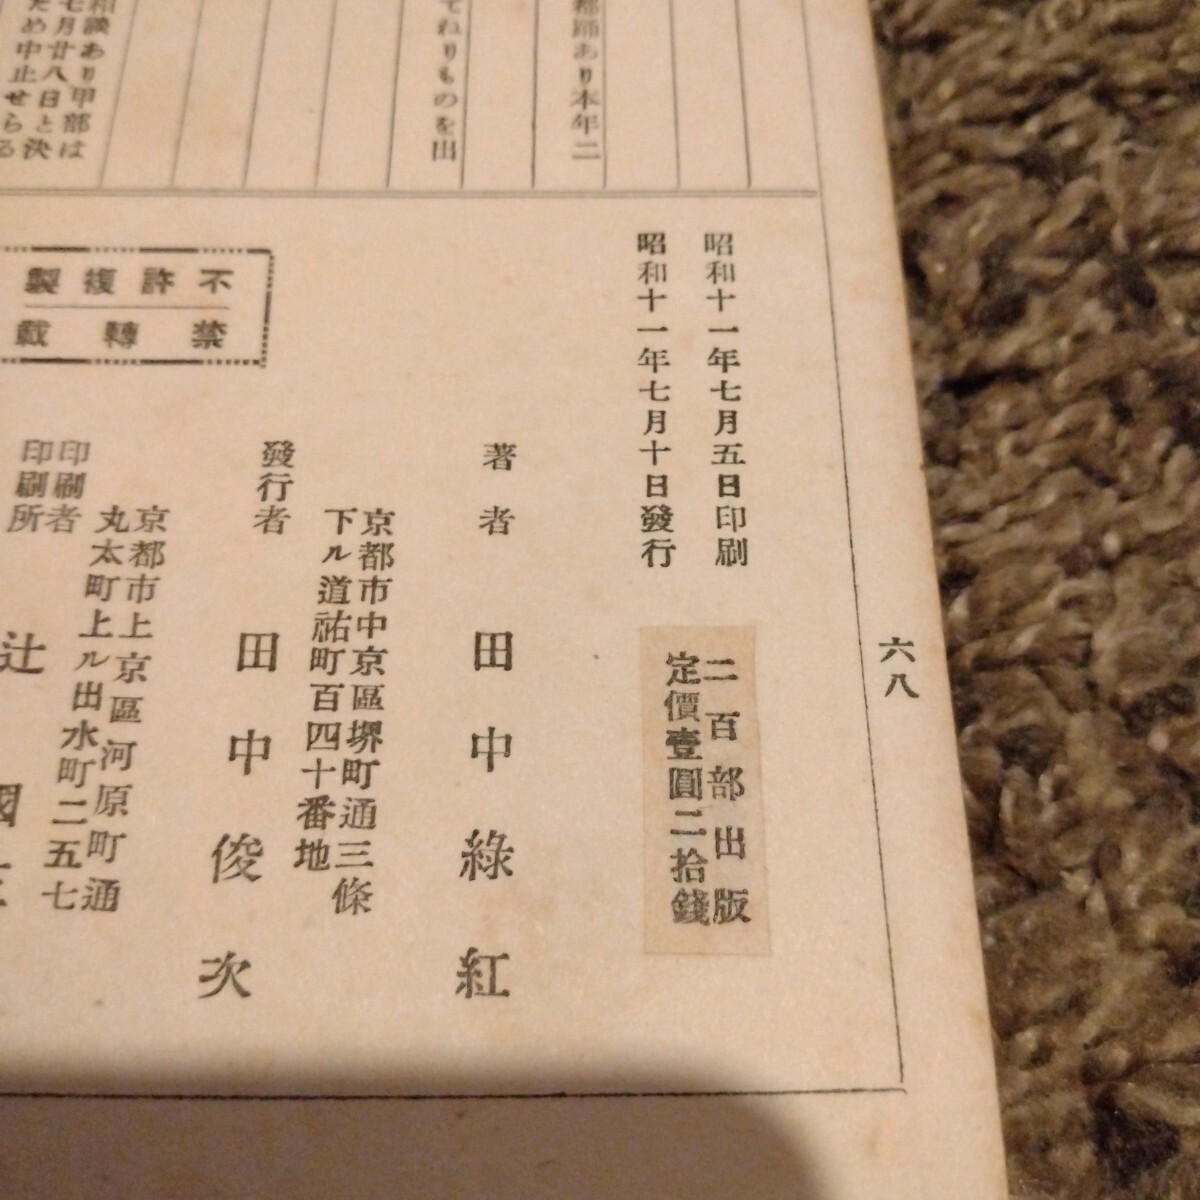 都踊あり本年二
てねりものを出
相談あり甲部は
七月廿八日と決
ため中止せらる
六八
昭和十一年七月五日印刷
昭和十一年七月十日發行
二百部出版
定價壹圓二拾錢
著者 田中綠紅
京都市中京區堺町通三條
下ル道祐町百四十番地
發行者 田中俊次
京都市上京區河原町通
丸太町上ル出水町二五七
印刷者
印刷所
辻
不許複製
禁轉載